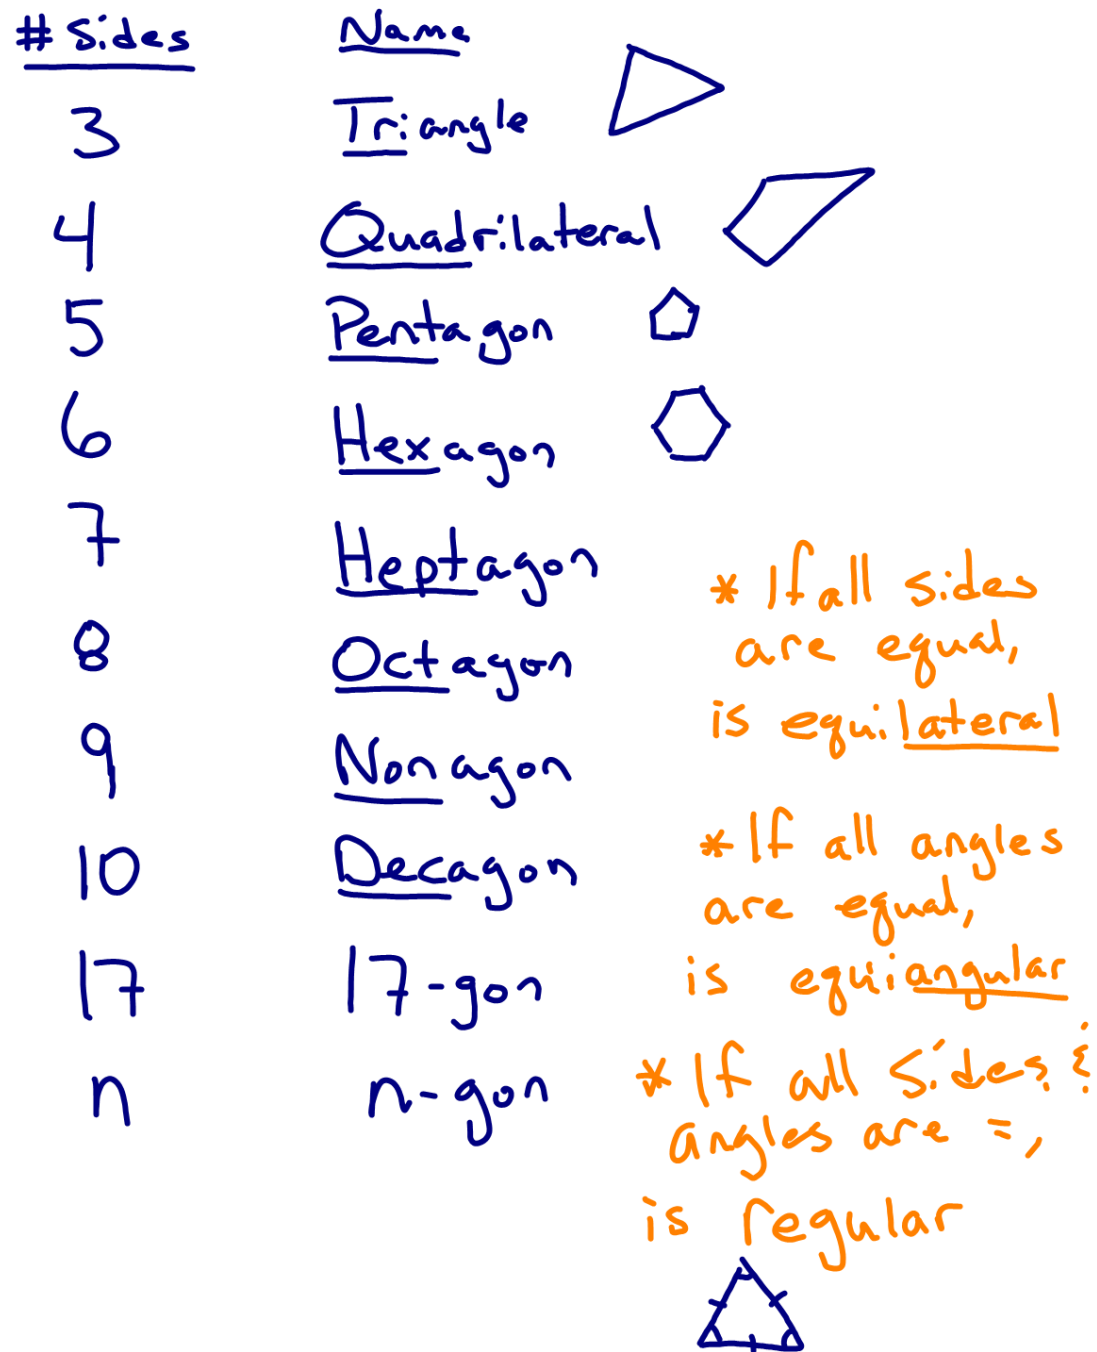 # Sides Name
3 Triangle
4 Quadrilateral
5 Pentagon
6 Hexagon
7 Heptagon
8 Octagon
9 Nonagon
10 Decagon
17 17-gon
n n-gon
* If all sides
are equal,
is equilateral
* If all angles
are equal,
is equiangular
* If all sides &
angles are =,
is regular